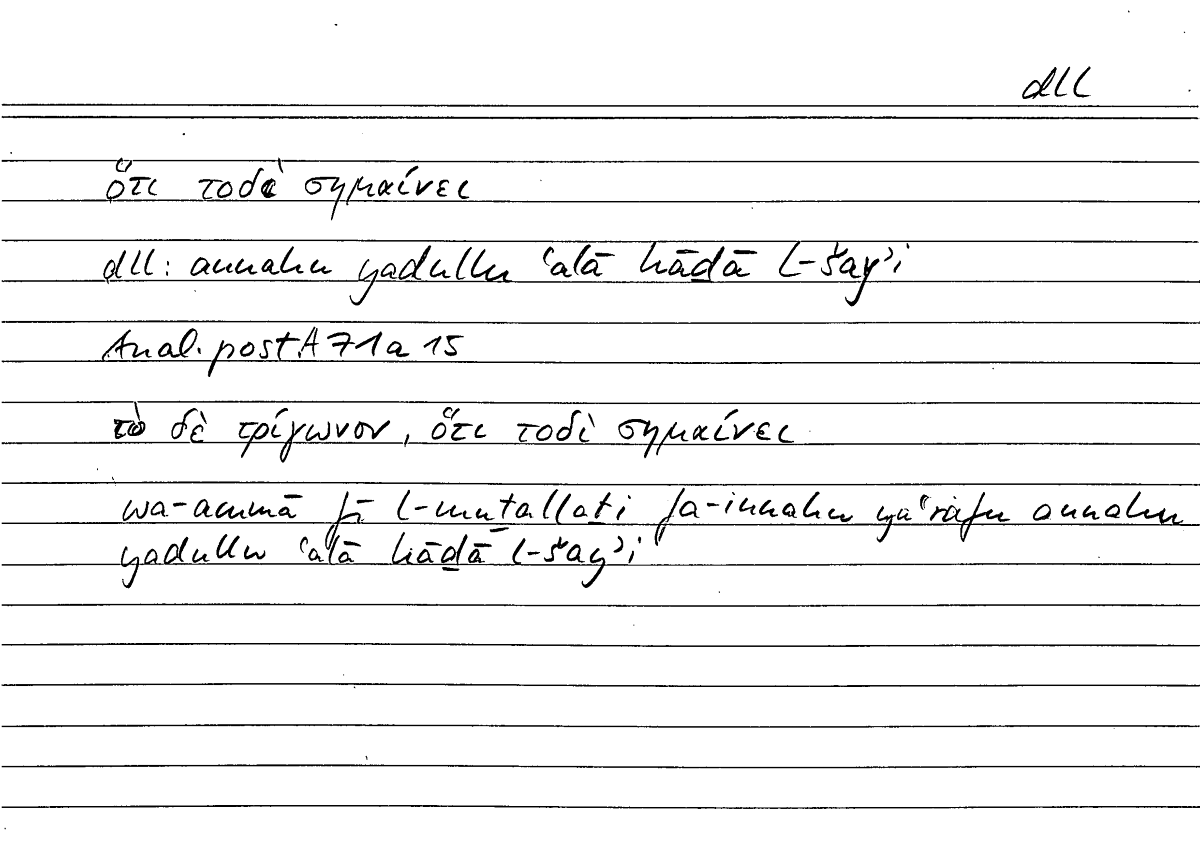 dll
ὅτι τοδὶ σημαίνει
dll: annahu yadullu ʿalā hāḏā l-šayʾi
Anal. post. A 71 a 15
τὸ δὲ τρίγωνον, ὅτι τοδὶ σημαίνει
wa-ammā fī l-muṯallaṯi fa-innahu yaʿrafu annahu
yadullu ʿalā hāḏā l-šayʾi